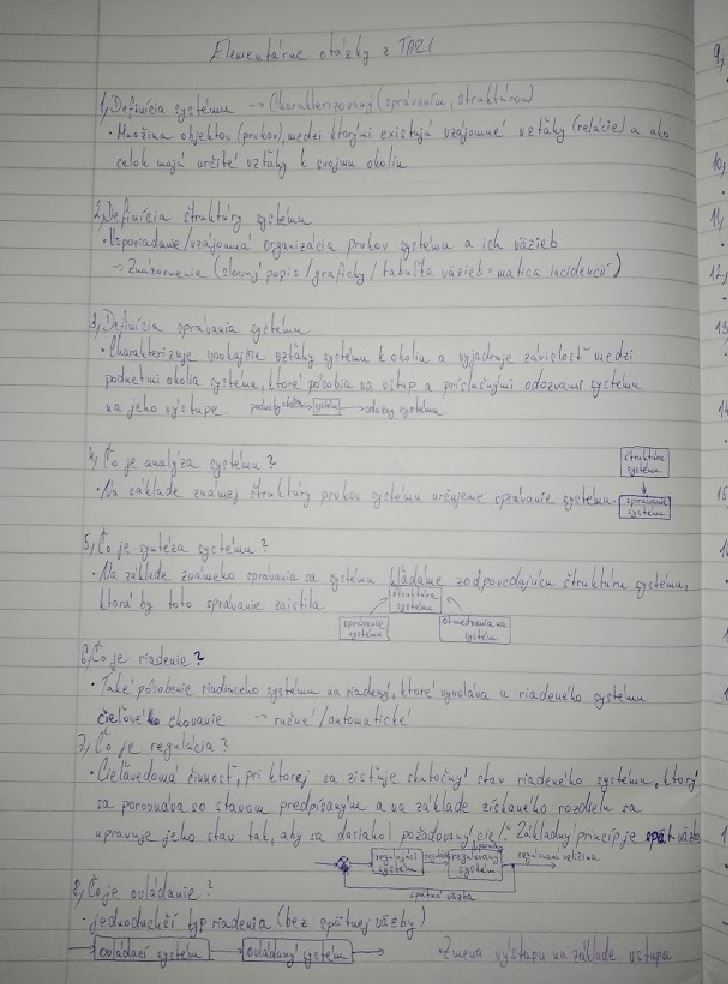 Elementárne otázky z TAR1
1, Definícia systému → Charakterizovaný (správaním, štruktúrou)
• Množina objektov (prvkov), medzi ktorými existujú vzájomné vzťahy (relácie) a ako
celok majú určité vzťahy k svojmu okoliu
2, Definícia štruktúry systému
• Usporiadanie/vzájomná organizácia prvkov systému a ich väzieb
→ Znázornenie (slovný popis/graficky/tabuľka väzieb = matica incidencií)
3, Definícia správania systému
• Charakterizuje vonkajšie vzťahy systému k okoliu a vyjadruje závislosť medzi
podnetmi okolia systému, ktoré pôsobia na vstup a príslušnými odozvami systému
na jeho výstupe. podnety okolia → systém → odozvy systému
4, Čo je analýza systému?
štruktúra
systému
• Na základe známej štruktúry prvkov systému určujeme správanie systému.
správanie
systému
5, Čo je syntéza systému?
• Na základe známeho správania sa systému hľadáme zodpovedajúcu štruktúru systému,
ktorá by toto správanie zaistila
štruktúra
systému
správanie
systému
obmedzenia na
systém
6, Čo je riadenie?
• Také pôsobenie riadiaceho systému na riadený, ktoré vyvoláva u riadeného systému
cieľové chovanie → ručné/automatické
7, Čo je regulácia?
• Cieľavedomá činnosť, pri ktorej sa zisťuje skutočný stav riadeného systému, ktorý
sa porovnáva so stavom predpísaným a na základe získaného rozdielu sa
upravuje jeho stav tak, aby sa dosiahol požadovaný cieľ. Základný princíp je spät. väzba
poruchy
regulujúci
systém
regulovaný
systém
regulovaná veličina
spätná väzba
8, Čo je ovládanie?
• jednoduchší typ riadenia (bez spätnej väzby)
→ ovládací systém → ovládaný systém →
• Zmena výstupu na základe vstupu
9,
10,
11,
12,
13
14
15
1